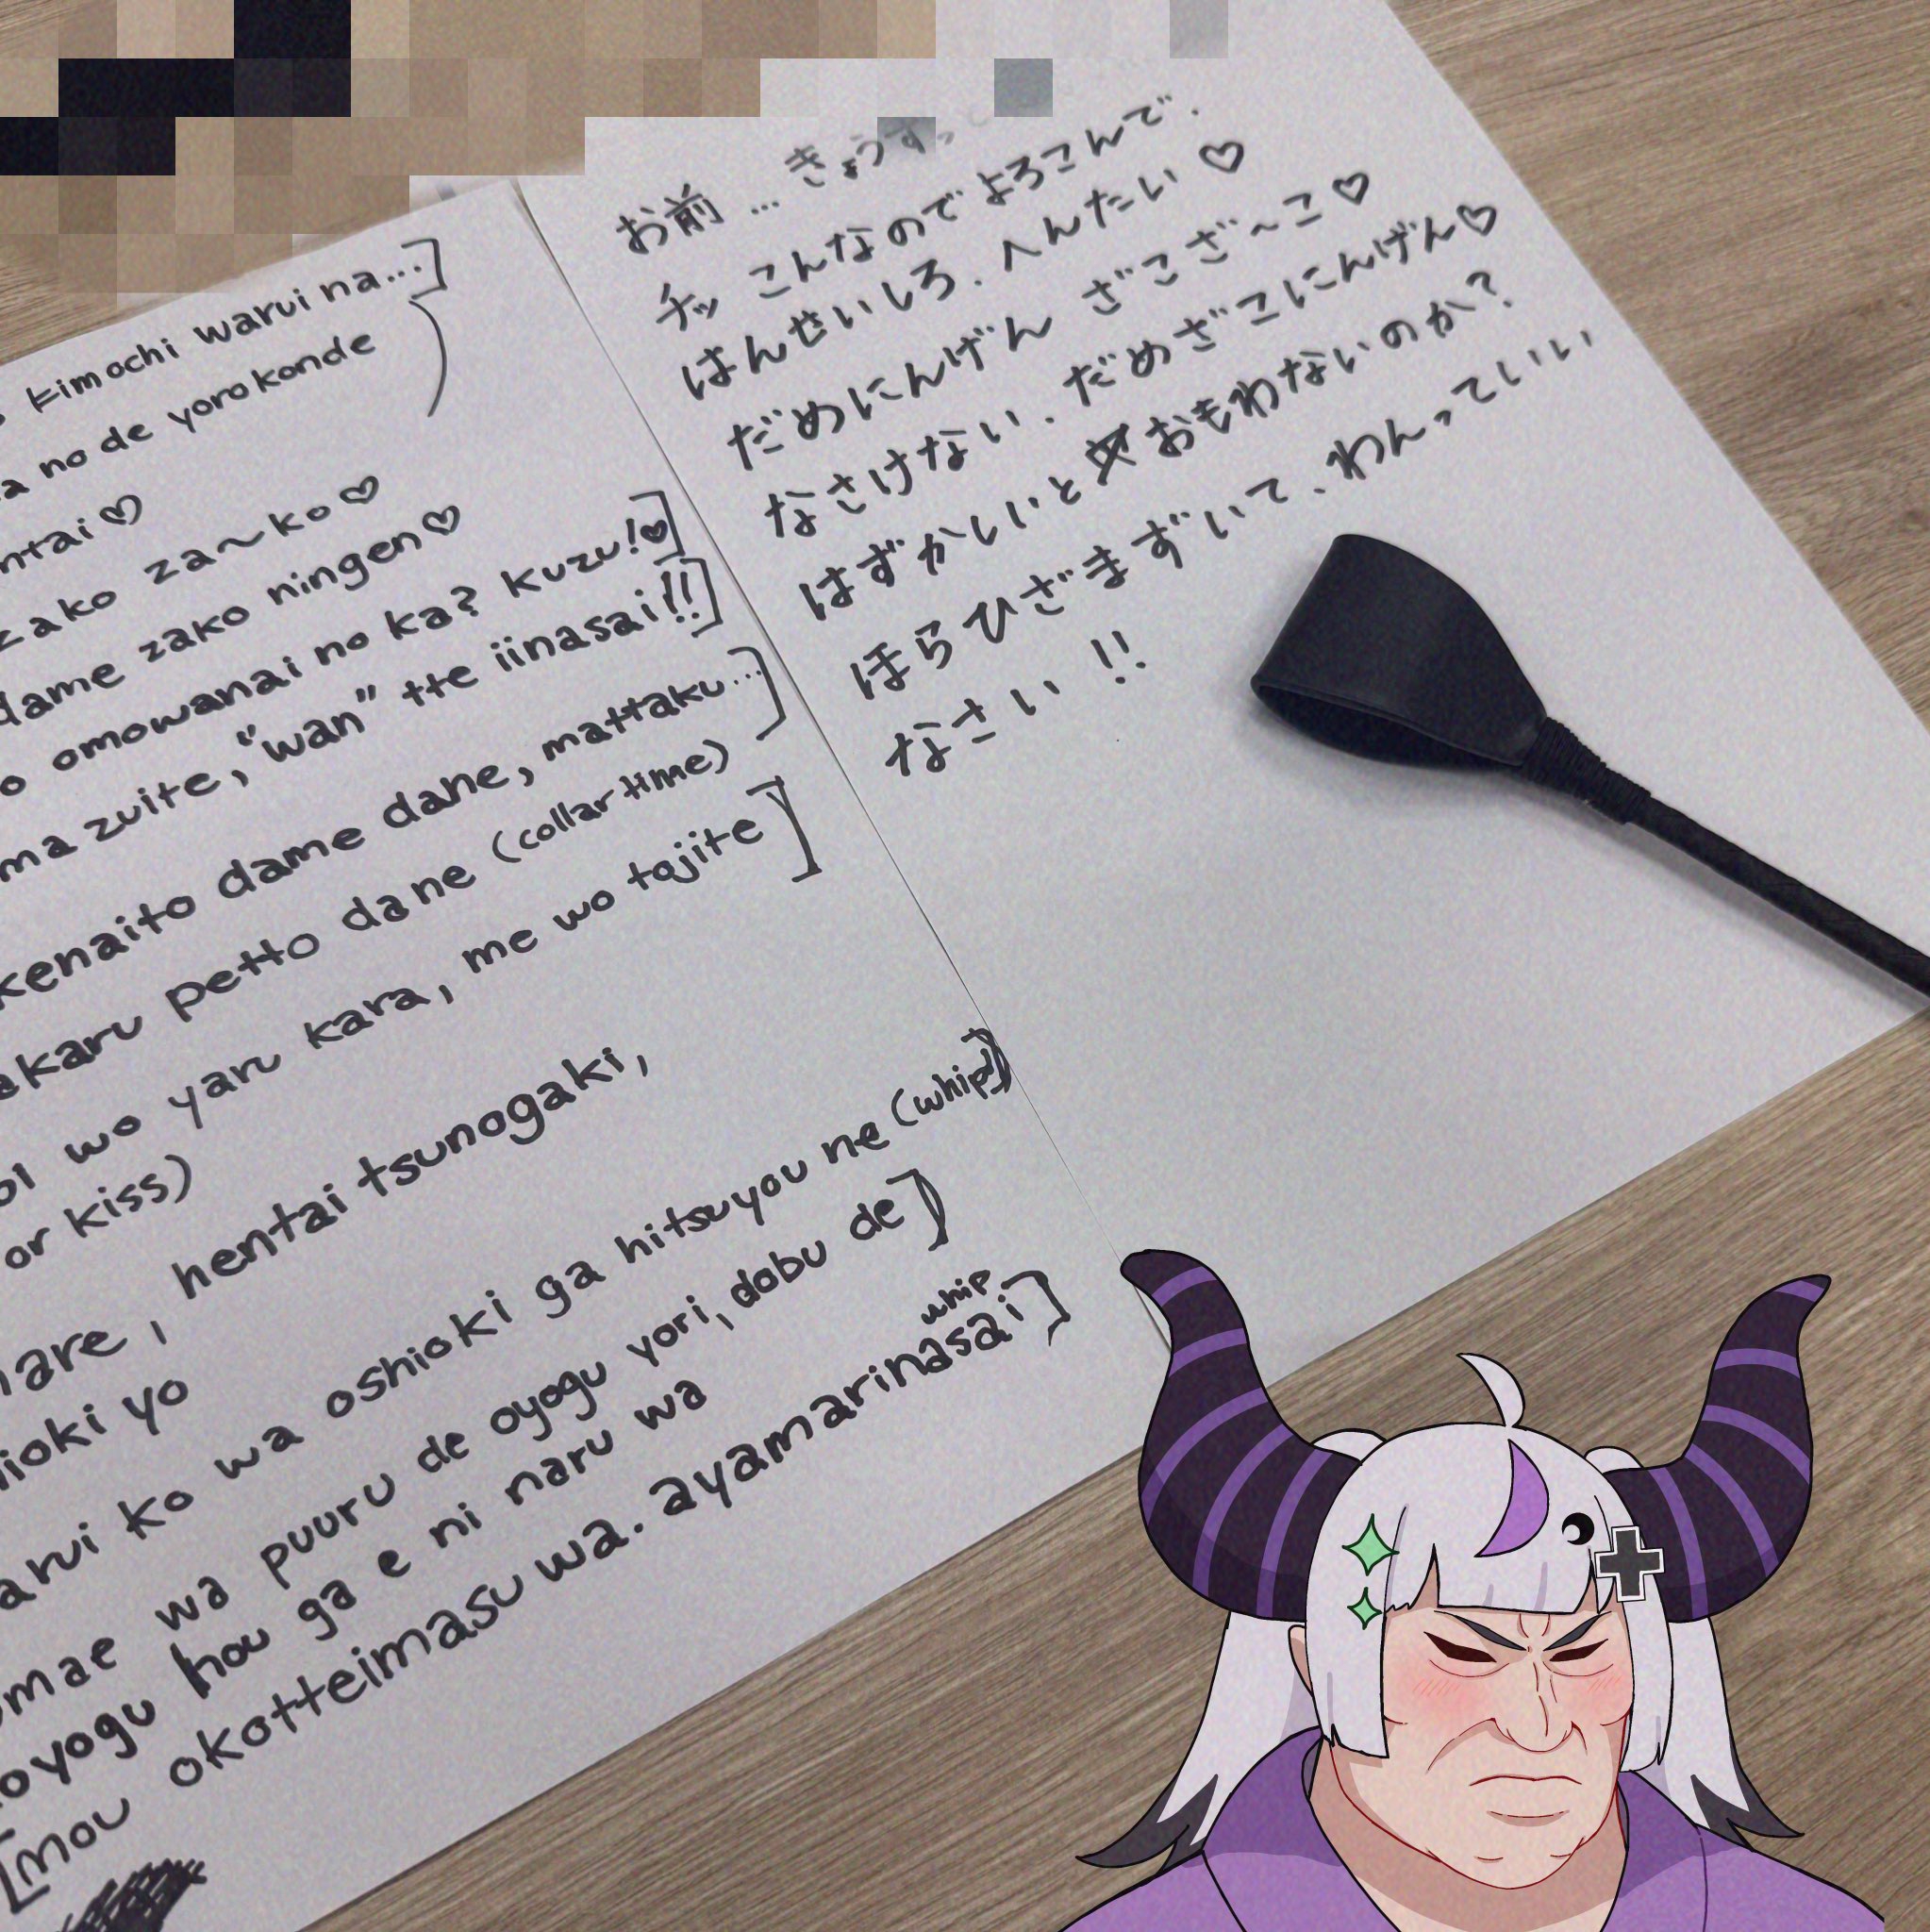 kimochi warui na...]
no de yorokonde
ntai♡
zako za~ko♡
dame zako ningen♡
omowanai no ka? kuzu!♥]
ma zuite, "wan" tte iinasai!!]
kenaito dame dane, mattaku...]
akaru petto dane (collar time)
wo yaru kara, me wo tojite]
or kiss)
hentai tsunogaki,
ioki yo
arui ko wa oshioki ga hitsuyou ne (whip)]
omae wa puuru de oyogu yori, dobu de]
oyogu hou ga e ni naru wa
whip
[mou okotteimasu wa. ayamarinasai]
お前...きょうすっ
チッ こんなのでよろこんで.
はんせいしろ. へんたい♡
だめにんげん ざこざ~こ♡
なさけない. だめざこにんげん♡
はずかしいとおもわないのか?
ほらひざまずいて、わんっていい
なさい!!